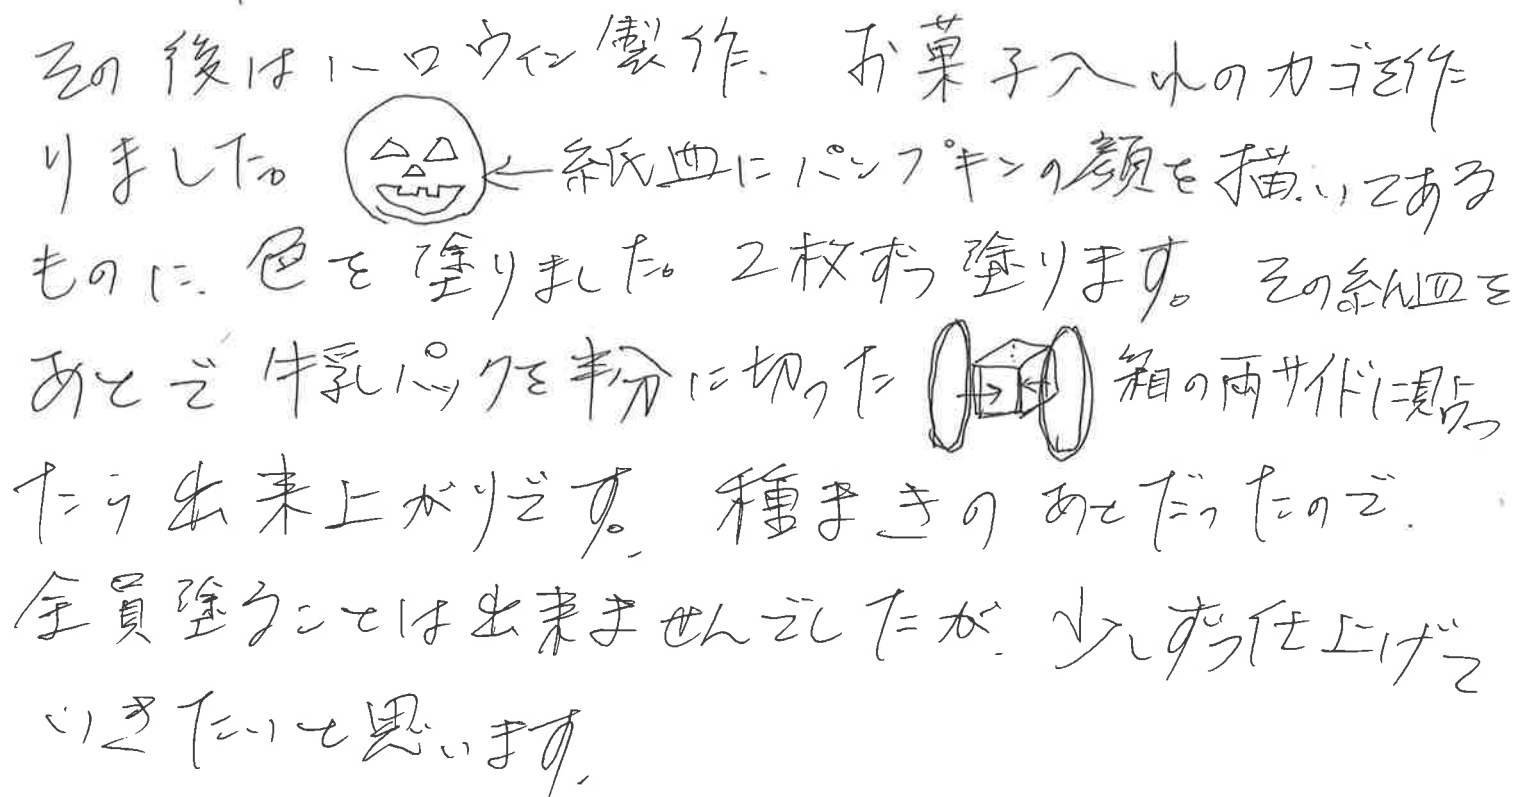 その後はハロウィン製作、お菓子入れのカゴを作
りました。←紙皿にパンプキンの顔を描いてある
ものに、色を塗りました。2枚ずつ塗ります。その紙皿を
あとで牛乳パックを半分に切った箱の両サイドに貼っ
たら出来上がりです。種まきのあとだったので、
全員塗ることは出来ませんでしたが、少しずつ仕上げて
いきたいと思います。